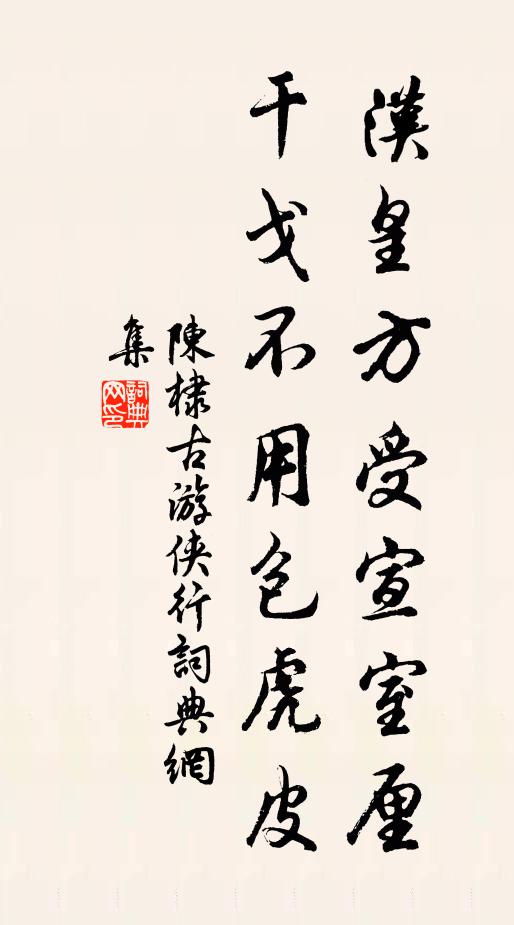 漢皇方受宣室厘
干戈不用包虎皮
陳棣古游俠行詞典網
集
詞典
网印